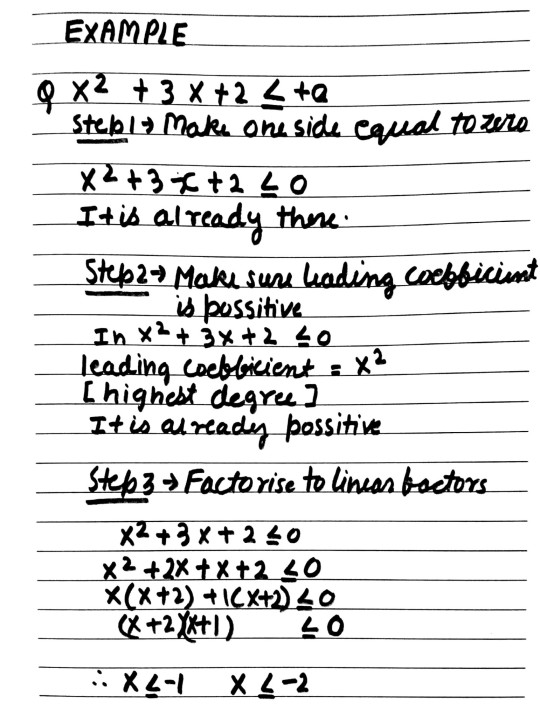 EXAMPLE
Q x² + 3x + 2 ≤ +a
Step1→ Make one side equal to zero
x² + 3x + 2 ≤ 0
It is already there.
Step2→ Make sure leading coefficient
is possitive
In x² + 3x + 2 ≤ 0
leading coefficient = x²
[highest degree]
It is already possitive
Step3→ Factorise to linear factors
x² + 3x + 2 ≤ 0
x² + 2x + x + 2 ≤ 0
x(x+2) + 1(x+2) ≤ 0
(x+2)(x+1) ≤ 0
∴ x ≤ -1 x ≤ -2